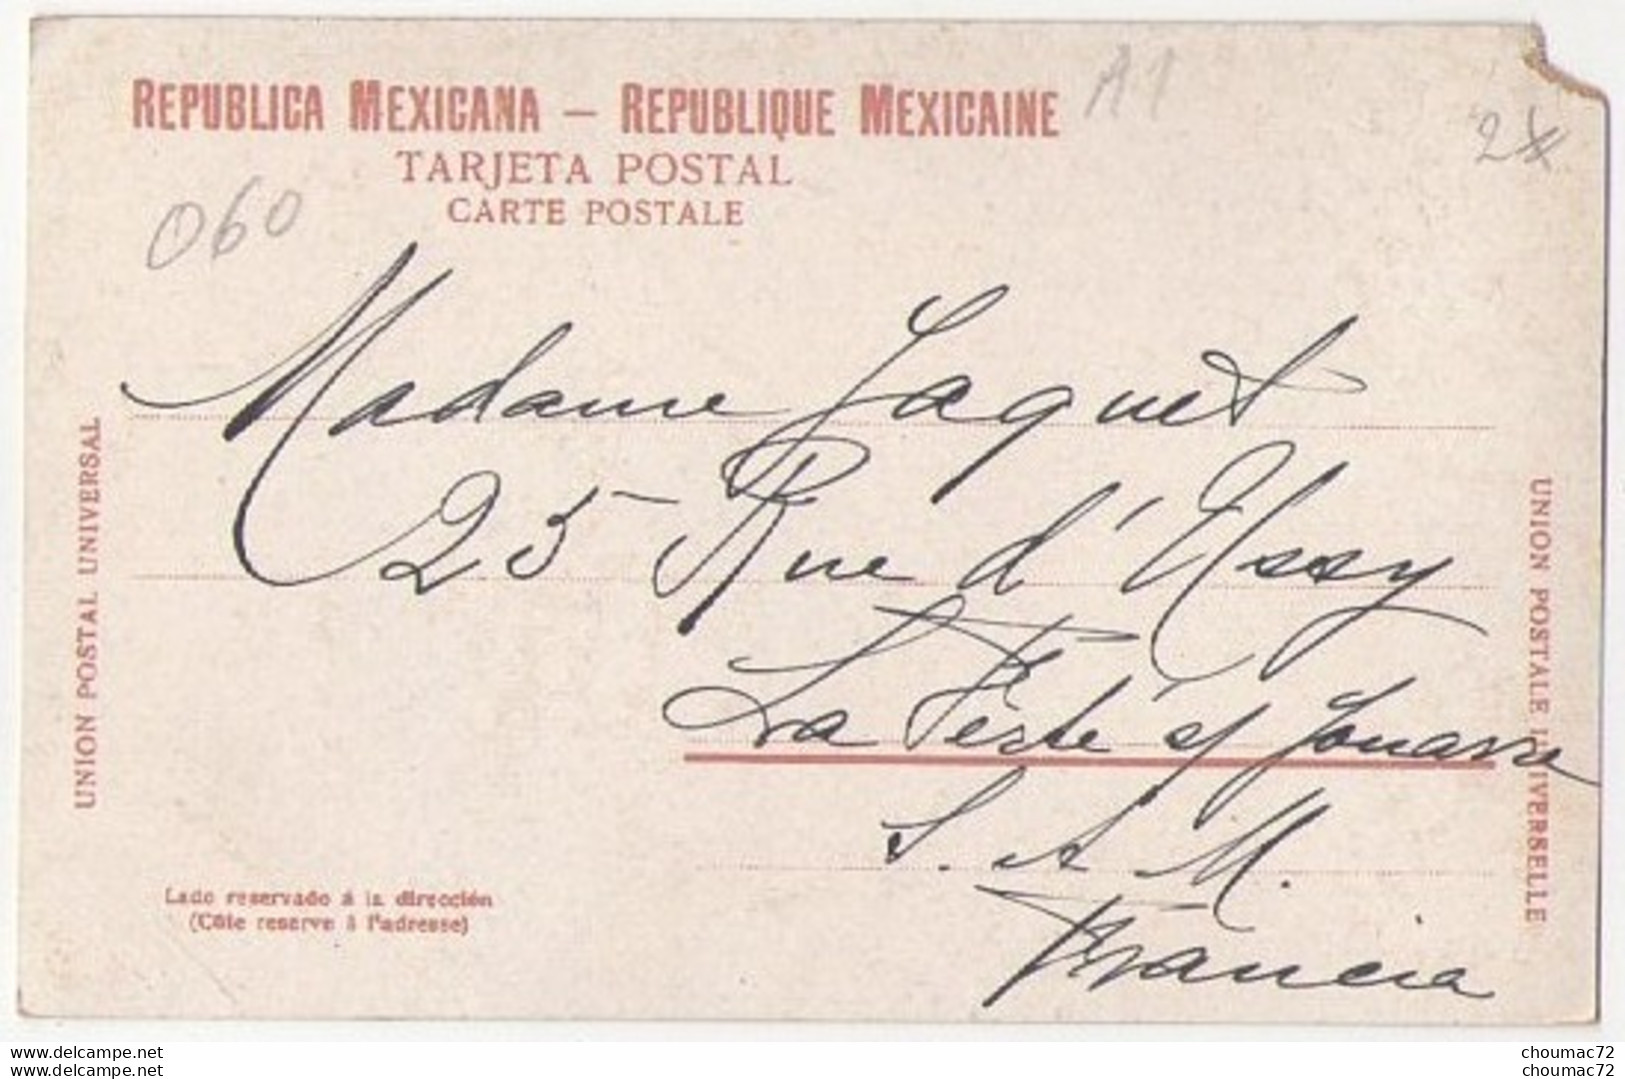 REPUBLICA MEXICANA — REPUBLIQUE MEXICAINE
A1
2X
TARJETA POSTAL
CARTE POSTALE
060
Madame Jaquet
25 Rue d'Ussy
La Ferte s/ Jouarre
S. et M.
Francia
UNION POSTAL UNIVERSAL
UNION POSTALE UNIVERSELLE
Lado reservado á la dirección
(Côte reserve à l'adresse)
www.delcampe.net
www.delcampe.net
choumac72
choumac72